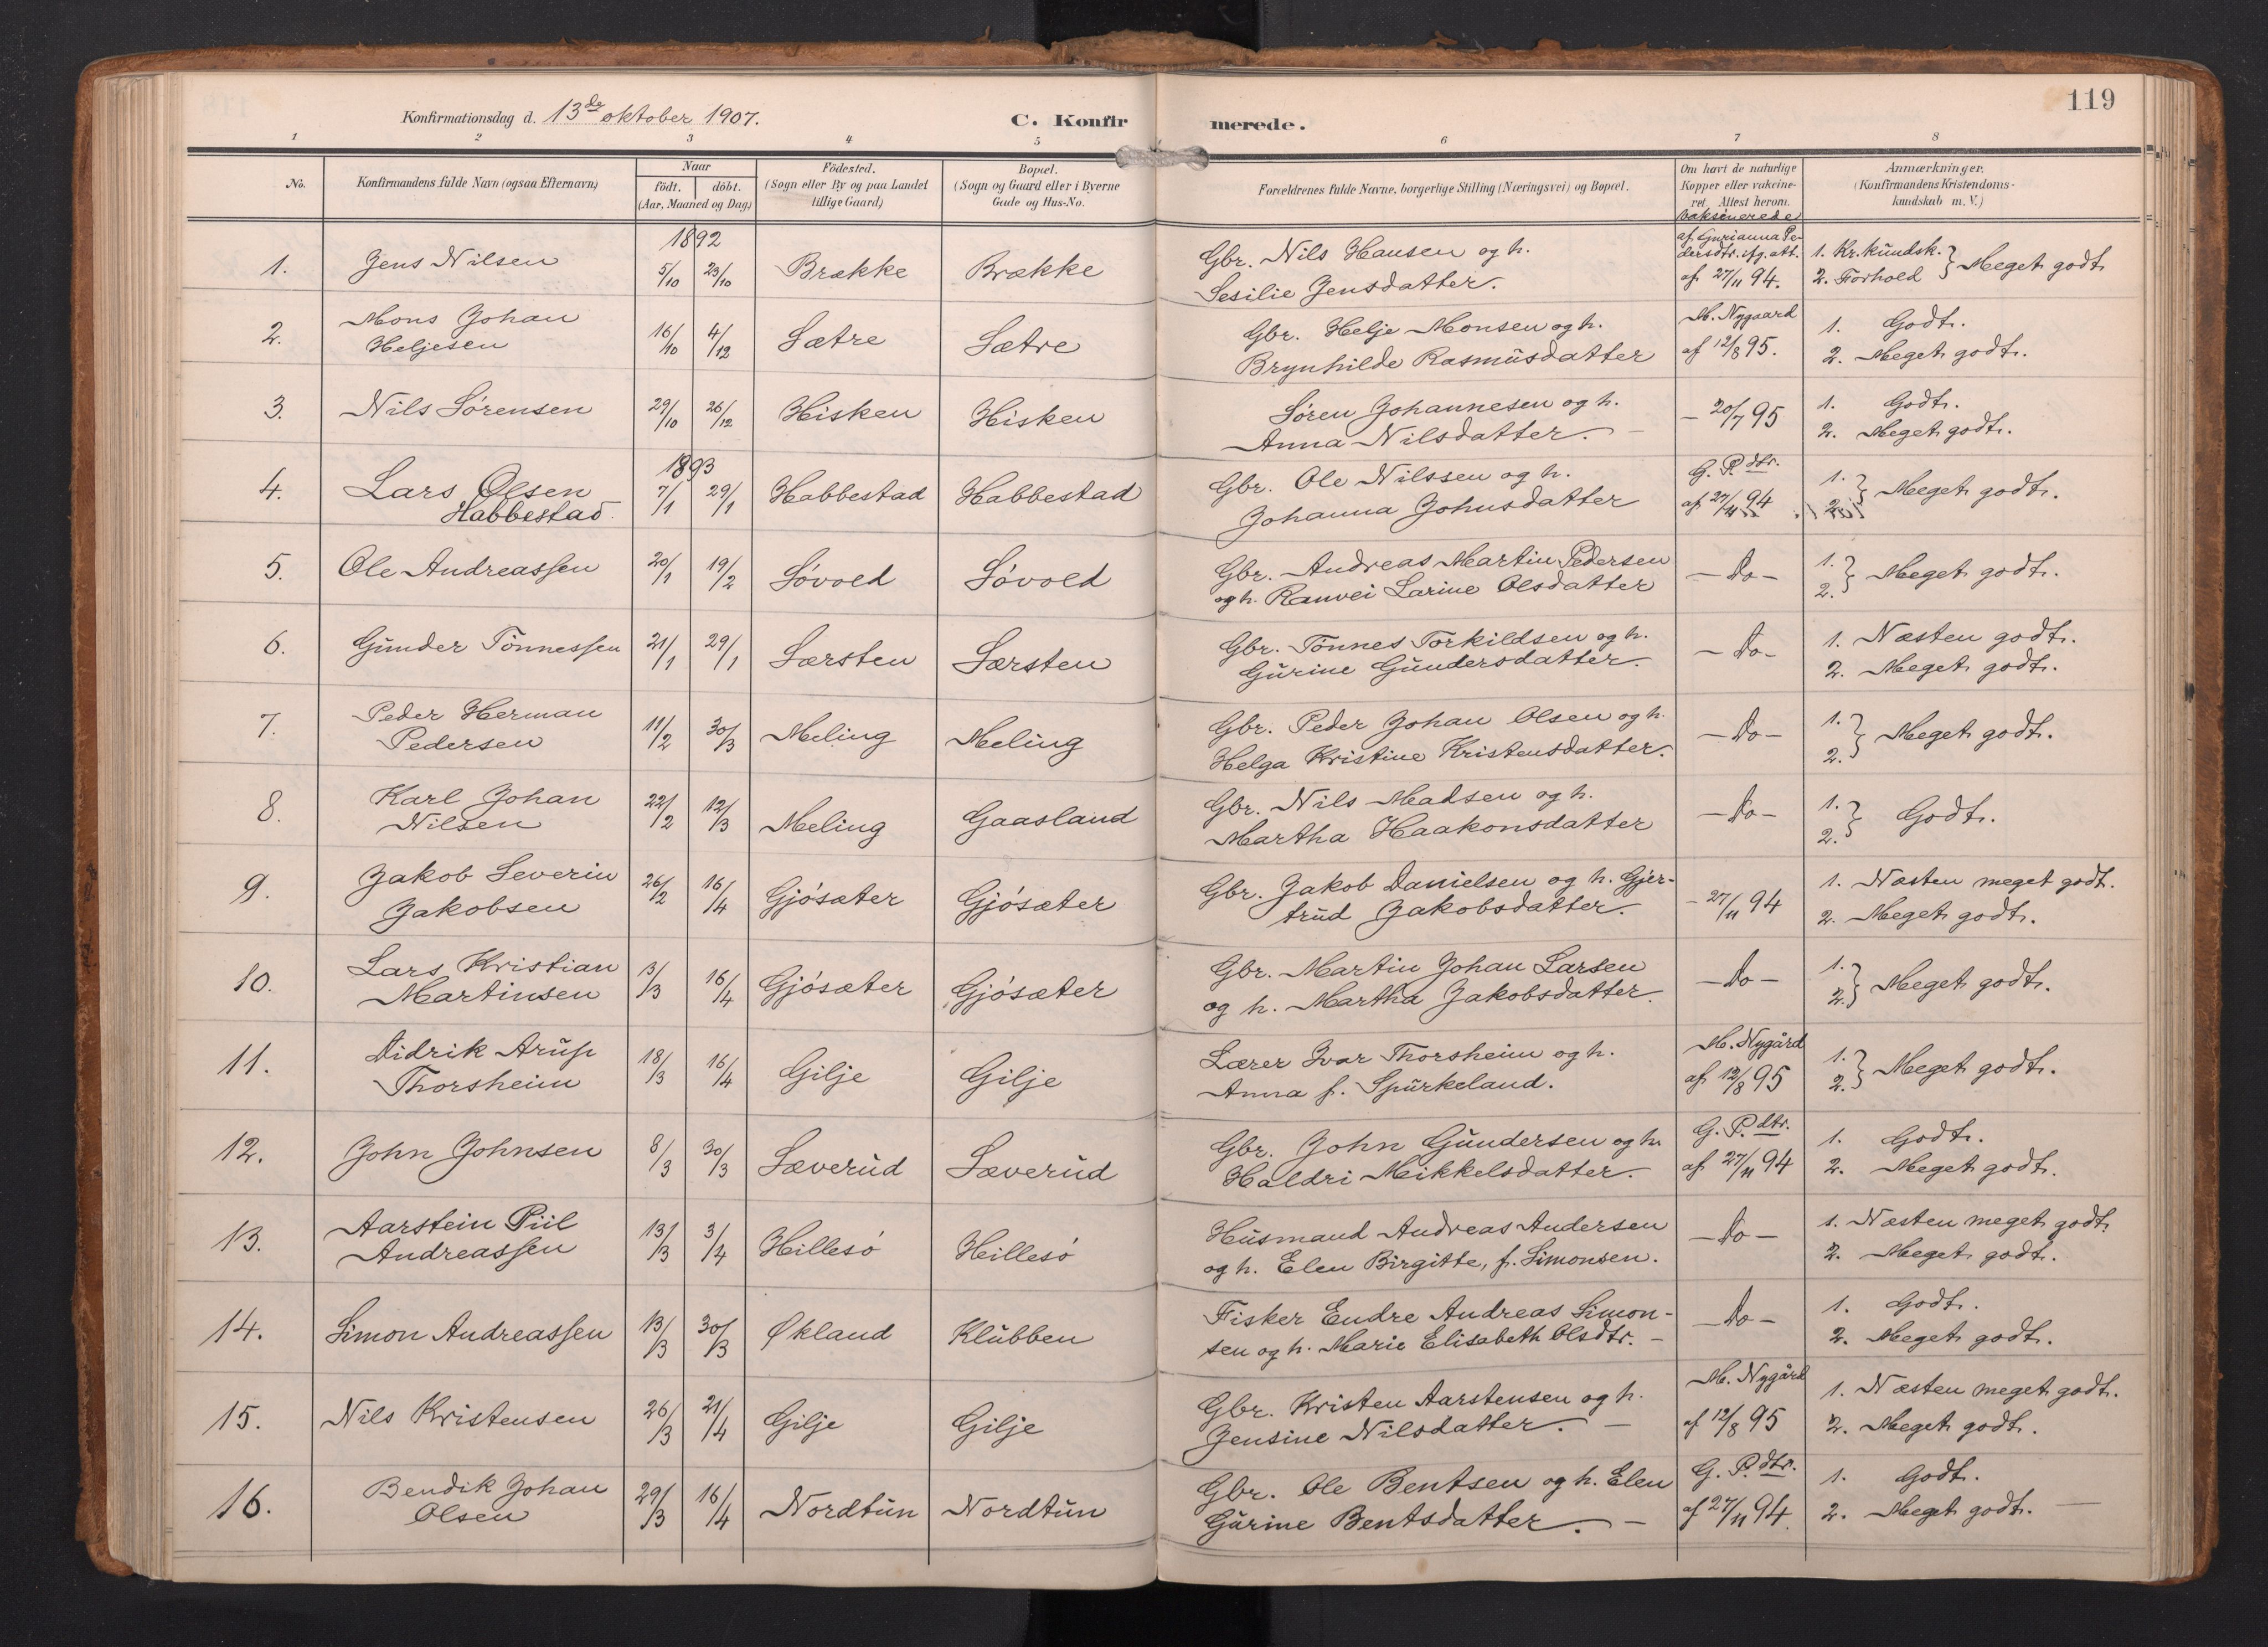 119
Konfirmationsdag d. 13de oktober 1907.
C. Konfirmerede.
1 2 3 4 5 6 7 8
No.
Konfirmandens fulde Navn (ogsaa Efternavn)
Naar
födt. döbt.
(Aar, Maaned og Dag)
Födested.
(Sogn eller By og paa Landet
tillige Gaard)
Bopæl.
(Sogn og Gaard eller i Byerne
Gade og Hus-No.
Forældrenes fulde Navne, borgerlige Stilling (Næringsvei) og Bopæl.
Om havt de naturlige
Kopper eller vakcine-
ret. Attest herom.
Anmærkninger.
(Konfirmandens Kristendoms-
kundskab m. V.)
vaksinerede
1892
af Gurianna Pe-
1. Jens Nilsen 5/10 23/10 Brække Brække Gbr. Nils Hansen og h. dersdtr. ifg. att. 1. Kr. kundsk. } Meget godt
Sesilie Jensdatter. af 27/11 94. 2. Forhold
2. Mons Johan 16/10 4/12 Sætre Sætre Gbr. Helje Monsen og h. M. Nygaard 1. Godt.
Heljesen Brynhilde Rasmusdatter af 12/8 95. 2. Meget godt.
3. Nils Sörensen 29/10 26/12 Hisken Hisken Sören Johannesen og h. – 20/7 95 1. Godt.
Anna Nilsdatter. – 2. Meget godt.
1893
4. Lars Olsen 7/1 29/1 Habbestad Habbestad Gbr. Ole Nilssen og h. G. P. dtr. 1. } Meget godt.
Habbestad Johanna Johnsdatter af 27/11 94 2.
5. Ole Andreassen 20/1 19/2 Sövold Sövold Gbr. Andreas Martin Pedersen – Do – 1. } Meget godt.
og h. Ranvei Larine Olsdatter 2.
6. Gunder Tönnessen 21/1 29/1 Særsten Særsten Gbr. Tönnes Torkildsen og h. – Do – 1. Næsten godt.
Gurine Gundersdatter. 2. Meget godt.
7. Peder Herman 11/2 30/3 Meling Meling Gbr. Peder Johan Olsen og h. – Do – 1. } Meget godt.
Pedersen Helga Kristine Kristensdatter. 2.
8. Karl Johan 22/2 12/3 Meling Gaasland Gbr. Nils Madsen og h. – Do – 1. } Godt.
Nilsen Martha Haakonsdatter 2.
9. Jakob Severin 26/2 16/4 Gjösæter Gjösæter Gbr. Jakob Danielsen og h. Gjer- – 27/11 94 1. Næsten meget godt.
Jakobsen trud Jakobsdatter. 2. Meget godt.
10. Lars Kristian 3/3 16/4 Gjösæter Gjösæter Gbr. Martin Johan Larsen – Do – 1. } Meget godt.
Martinsen og h. Martha Jakobsdatter. 2.
11. Didrik Arup 18/3 16/4 Gilje Gilje Lærer Ivar Thorsheim og h. M. Nygård 1. } Meget godt.
Thorsheim Anna f. Spurkeland. af 12/8 95 2.
12. John Johnsen 8/3 30/3 Sæverud Sæverud Gbr. John Gundersen og h. G. P. dtr. 1. Godt.
Haldri Mikkelsdatter. af 27/11 94 2. Meget godt.
13. Aarstein Piil 13/3 3/4 Hillesö Hillesö Husmand Andreas Andersen – Do – 1. Næsten meget godt.
Andreassen og h. Elen Birgitte, f. Simonsen. 2. Meget godt.
14. Simon Andreassen 13/3 30/3 Økland Klubben Fisker Endre Andreas Simon- – Do – 1. Godt.
sen og h. Marie Elisabeth Olsdtr. – 2. Meget godt.
15. Nils Kristensen 26/3 21/4 Gilje Gilje Gbr. Kristen Aarstensen og h. M. Nygård 1. Næsten meget godt.
Jensine Nilsdatter. – af 12/8 95 2. Meget godt.
16. Bendik Johan 29/3 16/4 Nordtun Nordtun Gbr. Ole Bentsen og h. Elen G. P. dtr. 1. Godt.
Olsen Gurine Bentsdatter. – af 27/11 94. 2. Meget godt. –